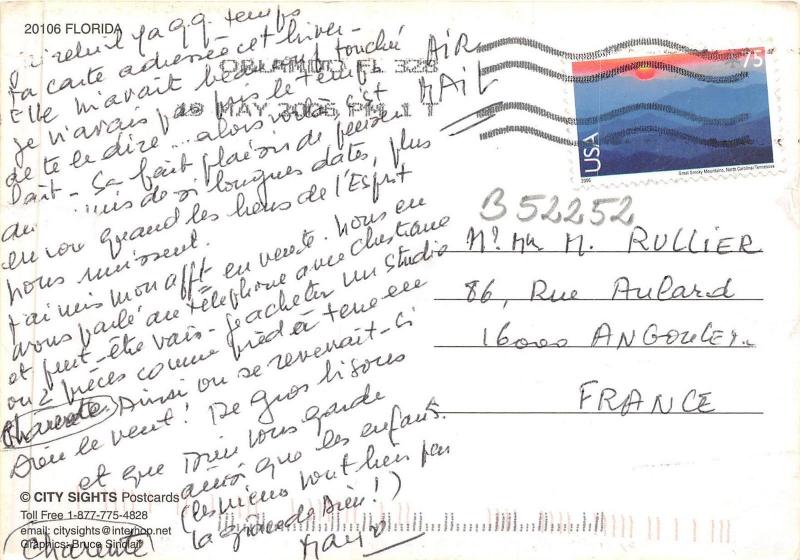 20106 FLORIDA
J'ai relu il y a qq. temps
ta carte adressée cet hiver-
Elle m'avait beaucoup touché
je n'avais pas pris le temps
de te le dire... alors voilà c'est
fait - Sa fait plaisir de penser
amis de si longues dates, plus
encore quand les liens de l'Esprit
nous unissent.
J'ai mis mon appt en vente. Nous en
avons parlé au téléphone avec Christiane
et peut-être vais-je acheter un studio
ou 2 pièces comme pied à terre en
Charente. Ainsi on se reverrait - si
Dieu le veut! De gros bisous
et que Dieu vous garde
ainsi que les enfants.
(les miens vont bien par
la grâce de Dieu!)
Charente
© CITY SIGHTS Postcards
Toll Free 1-877-775-4828
email: citysights@internop.net
Graphics: Bruce Sinclair
AIR
MAIL
ORLANDO FL 328
MAY 2006 PM 1 T
75
USA
2006
Great Smoky Mountains, North Carolina/Tennessee
B 52252
Mr. Mme M. RULLIER
86, Rue Aulard
16000 ANGOULEM
FRANCE